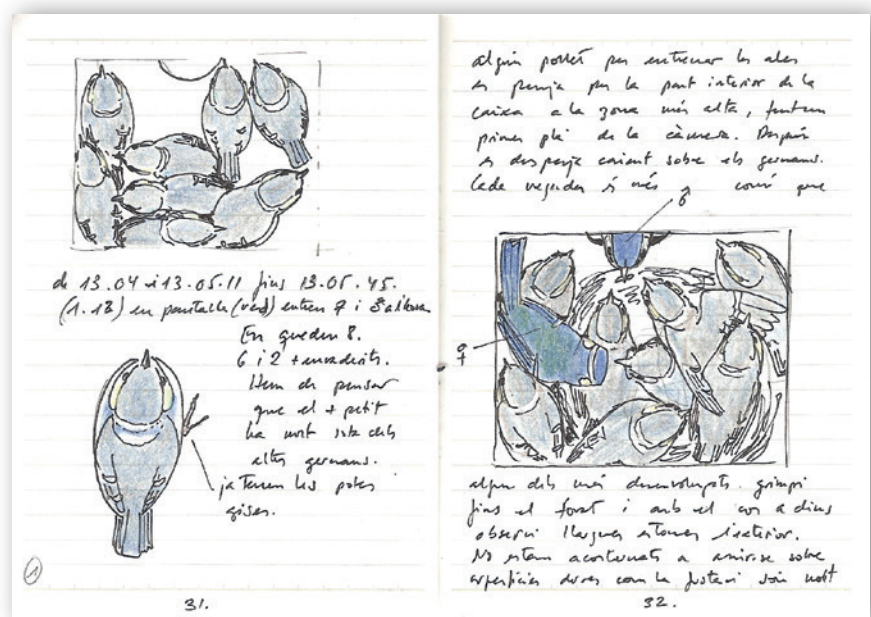 de 13.04 i 13.05.11 fins 13.05.45.
(1.18) en pantalla (verd) entren ♀ i ♂ a l'hora
En queden 8.
6 i 2 + endarrerits.
Hem de pensar
que el + petit
ha mort sota dels
altres germans.
ja tenen les potes
grises.
1
31.
algún pollet per entrenar les ales
es penja per la part interior de la
caixa a la zona més alta, fent un
primer plà de la càmera. Després
es despenja caient sobre els germans.
Cada vegada és més comú que
♂
♀
algun dels més desenvolupats grimpi
fins el forat i amb el cos a dins
observi llargues estones l'exterior.
No estan acostumats a
superfícies dures com la fusta i són molt
32.